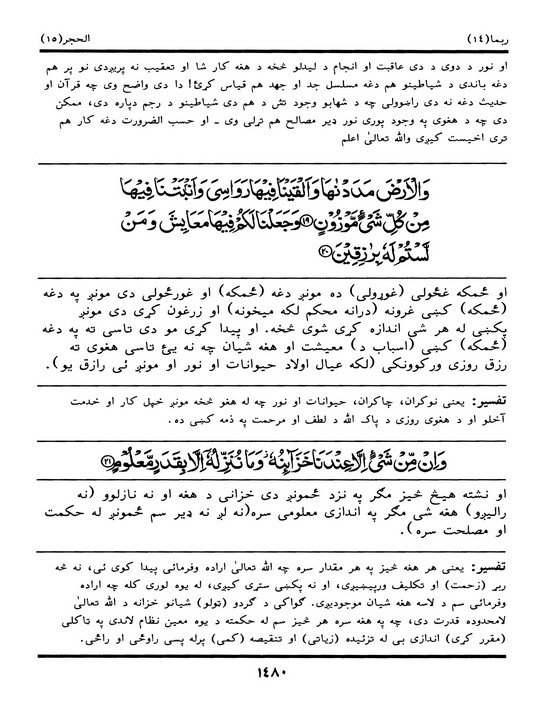 ربما(١٤) الحجر(١٥)
او نور د دوی د دی عاقبت او انجام د لیدلو څخه د هغه کار شا او تعقیب نه پریږدی نو پر هم
دغه باندی د شیاطینو هم دغه مسلسل جد او جهد هم قیاس کړئ! دا دی واضح وی چه قرآن او
حدیث دغه نه دی راښوولی چه د شهابو وجود تش د هم دی شیاطینو د رجم دپاره دی، ممکن
دی چه د هغوی په وجود پوری نور ډیر مصالح هم تړلی وی ـ او حسب الضرورت دغه کار هم
تری اخیست کیږی والله تعالیٰ اعلم
وَالْاَرْضَ مَدَدْنٰهَا وَاَلْقَیْنَا فِیْهَا رَوَاسِیَ وَاَنْۢبَتْنَا فِیْهَا
مِنْ کُلِّ شَیْءٍ مَّوْزُوْنٍ۝۱۹ وَجَعَلْنَا لَکُمْ فِیْهَا مَعَایِشَ وَمَنْ
لَّسْتُمْ لَهٗ بِرٰزِقِیْنَ۝۲۰
او ځمکه غځولی (غوړولی) ده مونږ دغه (ځمکه) او غورځولی دی مونږ په دغه
(ځمکه) کښی غرونه (درانه محکم لکه میخونه) او زرغون کړی دی مونږ
پکښی له هر شی اندازه کړی شوی څخه. او پیدا کړی مو دی تاسی ته په دغه
(ځمکه) کښی (اسباب د) معیشت او هغه شیان چه نه یئ تاسی هغوی ته
رزق روزی ورکوونکی (لکه عیال اولاد حیوانات او نور او مونږ ئی رازق یو).
تفسیر: یعنی نوکران، چاکران، حیوانات او نور چه له هغو څخه مونږ خپل کار او خدمت
آخلو او د هغوی روزی د پاک الله د لطف او مرحمت په ذمه کښی ده.
وَاِنْ مِّنْ شَیْءٍ اِلَّا عِنْدَنَا خَزَآئِنُهٗ وَمَا نُنَزِّلُهٗٓ اِلَّا بِقَدَرٍ مَّعْلُوْمٍ۝۲۱
او نشته هیڅ څیز مگر په نزد ځمونږ دی خزانی د هغه او نه نازلوو (نه
رالیږو) هغه شی مگر په اندازی معلومی سره(نه لږ نه ډیر سم ځمونږ له حکمت
او مصلحت سره).
تفسیر: یعنی هر هغه څیز په هر مقدار سره چه الله تعالیٰ اراده وفرمائی پیدا کوی ئی، نه څه
ربړ (زحمت) او تکلیف ورپیښیږی، او نه پکښی ستړی کیږی، له یوه لوری کله چه اراده
وفرمائی سم د لاسه هغه شیان موجودیږی. گواکی د گردو (ټولو) شیانو خزانه د الله تعالیٰ
لامحدوده قدرت دی، چه په هغه سره هر څیز سم له حکمته د یوه معین نظام لاندی په تاکلی
(مقرر کړی) اندازی بی له تزئیده (زیاتی) او تنقیصه (کمی) پرله پسی راوځی او راځی.
١٤٨٠